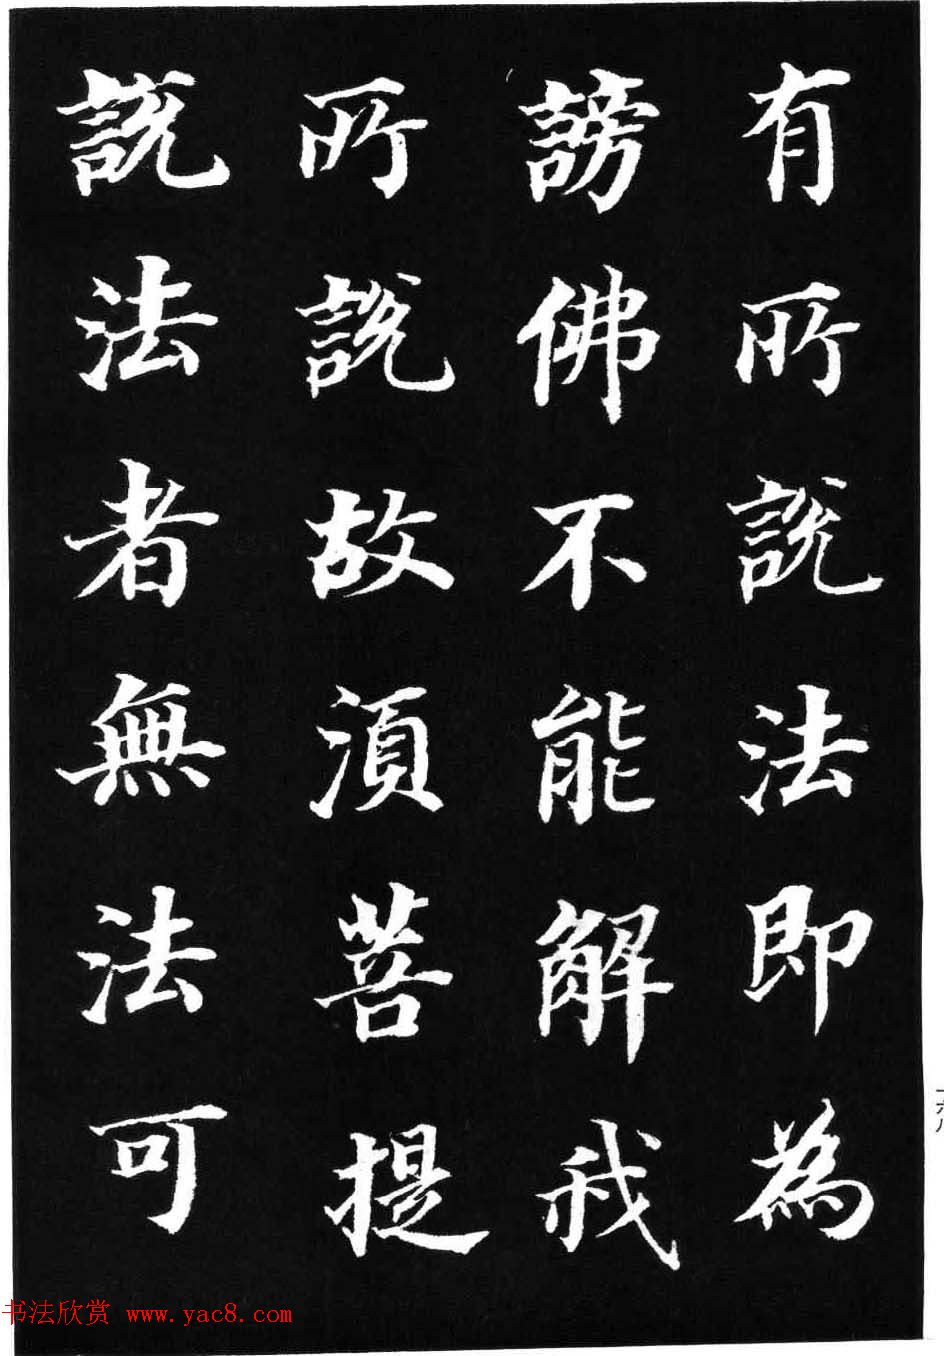 有所說法即為
謗佛不能解我
所說故須菩提
說法者無法可
一六八
书法欣赏 www.yac8.com